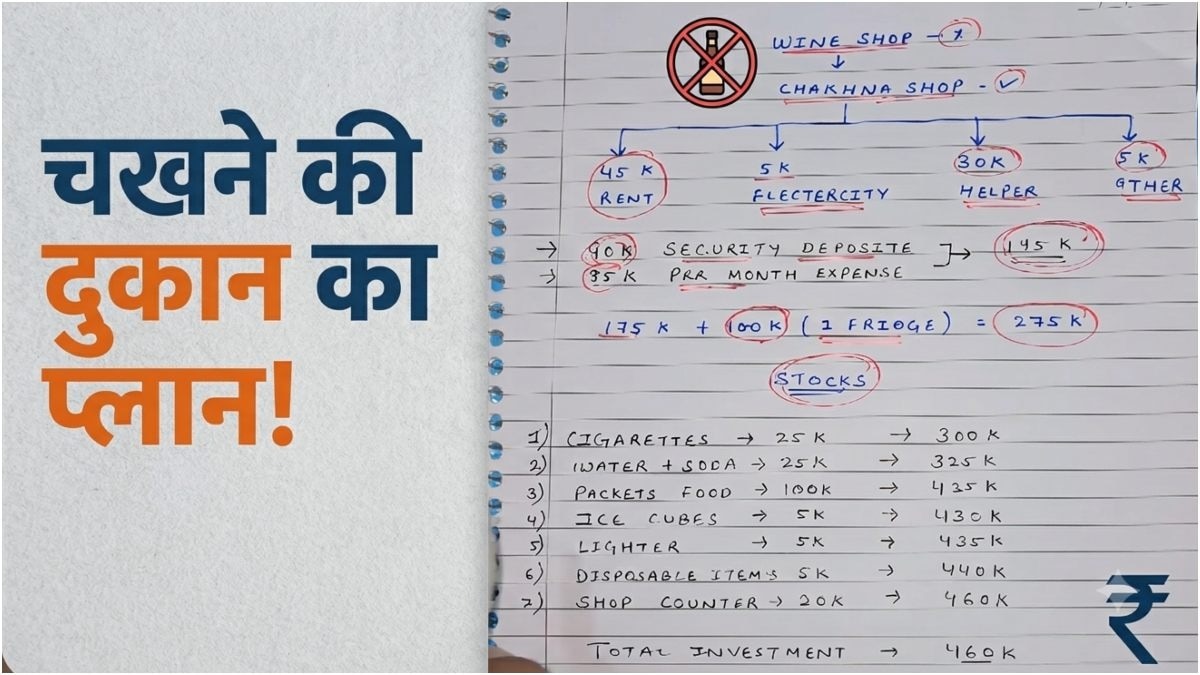 चखने की
दुकान का
प्लान!
WINE SHOP - x
CHAKHNA SHOP - ✓
45 K 5 K 30K 5K
RENT ELECTERCITY HELPER OTHER
→ 90K SECURITY DEPOSITE
→ 85K PRR MONTH EXPENSE
→ 195 K
175 K + 100K ( 1 FRIOGE ) = 275 K
STOCKS
1) CIGARETTES → 25 K → 300 K
2) WATER + SODA → 25K → 325 K
3) PACKETS FOOD → 100K → 435 K
4) ICE CUBES → 5K → 430 K
5) LIGHTER → 5K → 435K
6) DISPOSABLE ITEMS 5K → 440K
7) SHOP COUNTER → 20K → 460K
TOTAL INVESTMENT → 460K
₹